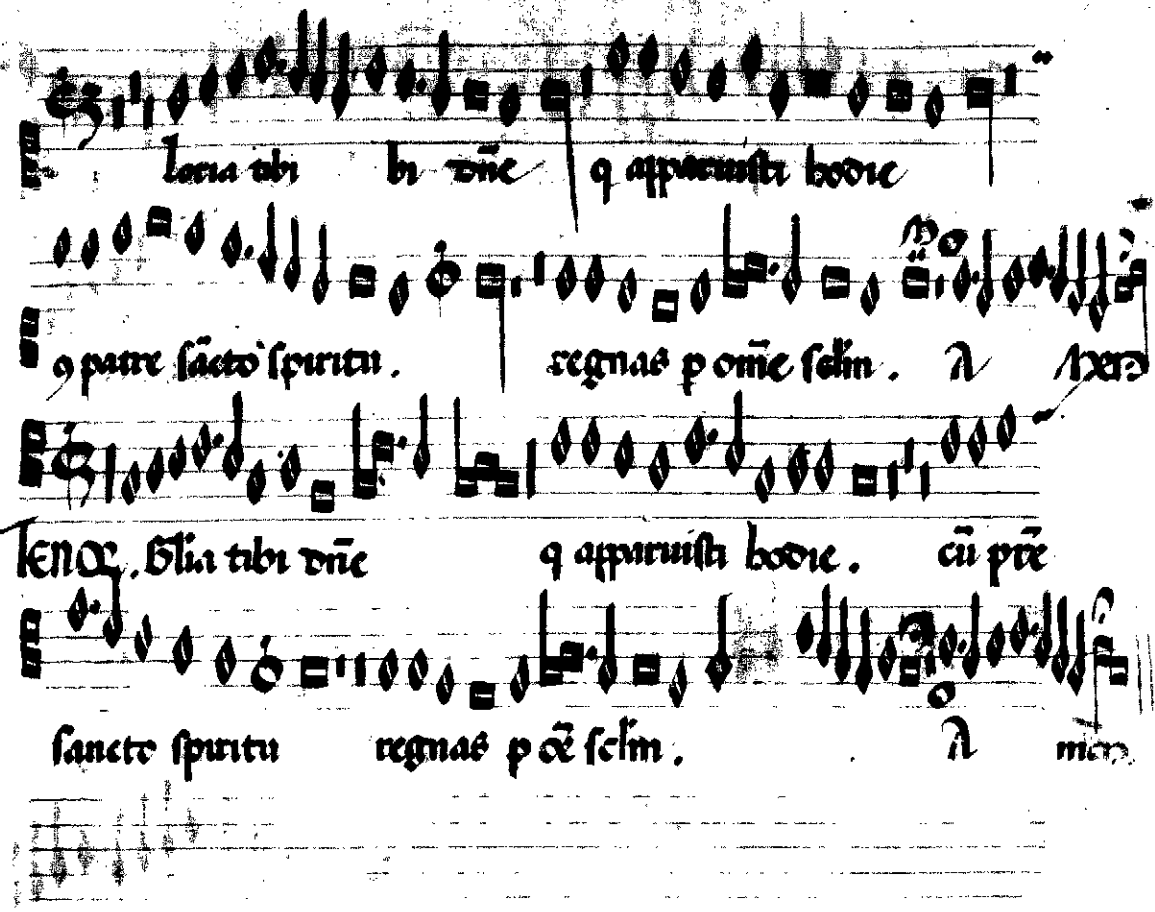 loria tibi bi dn̄e q apparuisti hodie
ꝯ patre sācto spiritu. regnas p om̄e sclm̄. A
tenor. Glia tibi dn̄e q apparuisti hodie. cū pr̄e
sancto spiritu regnas p oē sclm̄. A men